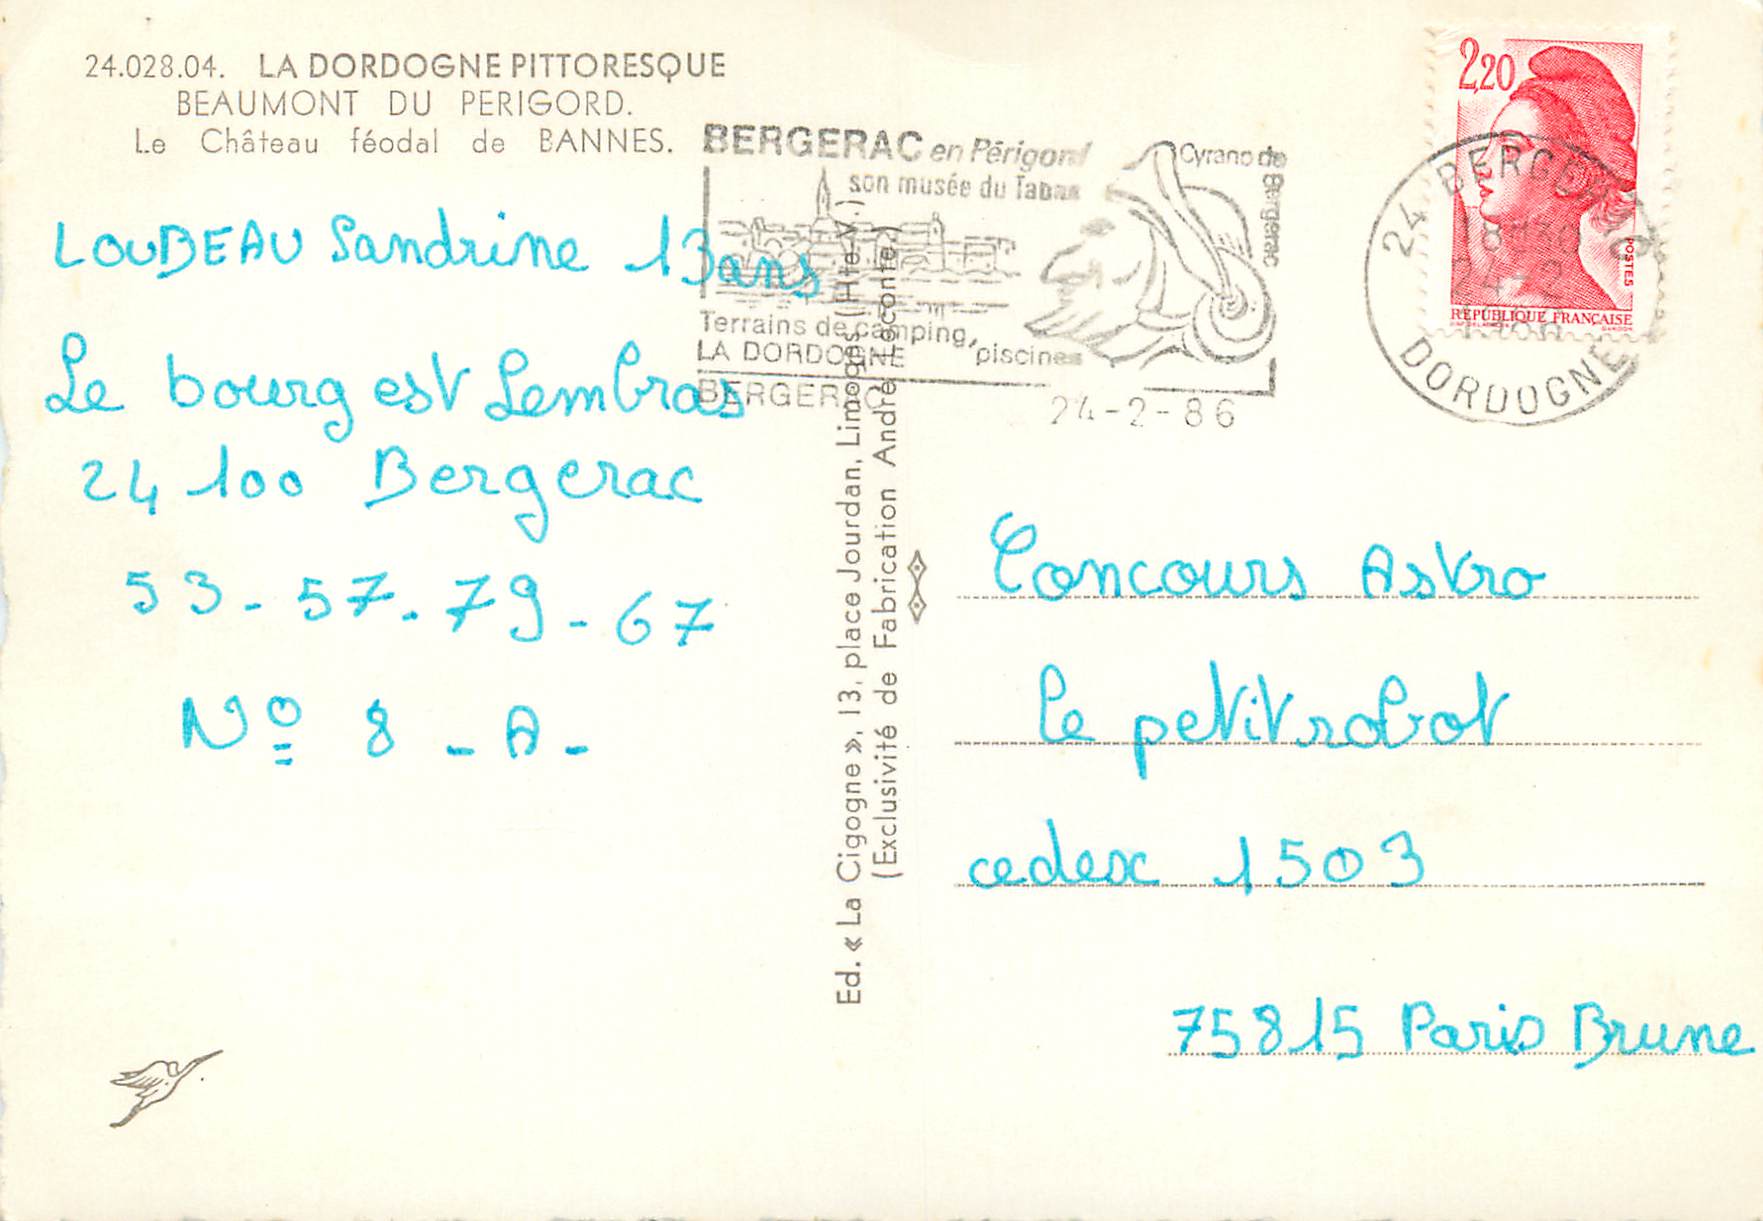 24.028.04. LA DORDOGNE PITTORESQUE
BEAUMONT DU PERIGORD.
Le Château féodal de BANNES.
LOUBEAU Sandrine 13 ans
Le bourg est Lembras
24 100 Bergerac
53 - 57 - 79 - 67
Nº 8 - A -
BERGERAC en Périgord
son musée du Tabac
Cyrano de Bergerac
Terrains de camping, piscines
LA DORDOGNE
BERGERAC
24-2-86
2,20
POSTES
RÉPUBLIQUE FRANÇAISE
24 BERGERAC
18H30
24-2
DORDOGNE
Ed. « La Cigogne », 13, place Jourdan, Limoges (Hte-V.)
(Exclusivité de Fabrication André Leconte)
Concours Astro
le petit robot
cedex 1503
75815 Paris Brune